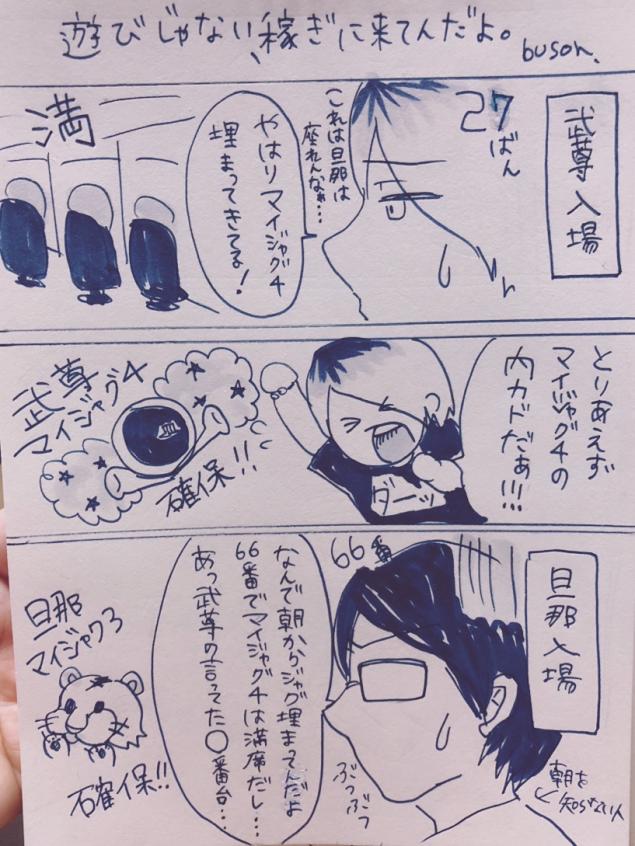 遊びじゃない、稼ぎに来てんだよ。
buson.
武尊入場
27ばん
これは旦那は
座れんなぁ…
やはりマイジャグ4
埋まってきてる!
満
とりあえず
マイジャグ4の
内カドだぁ!!!
ダーッ
武尊
マイジャグ4
確保!!
旦那入場
66番
なんで朝からジャグ埋まってんだよ
66番でマイジャグ4は満席だし…
あっ武尊の言ってた〇番台…
ぶつぶつ
朝を
知らない人
旦那
マイジャグ3
確保!!